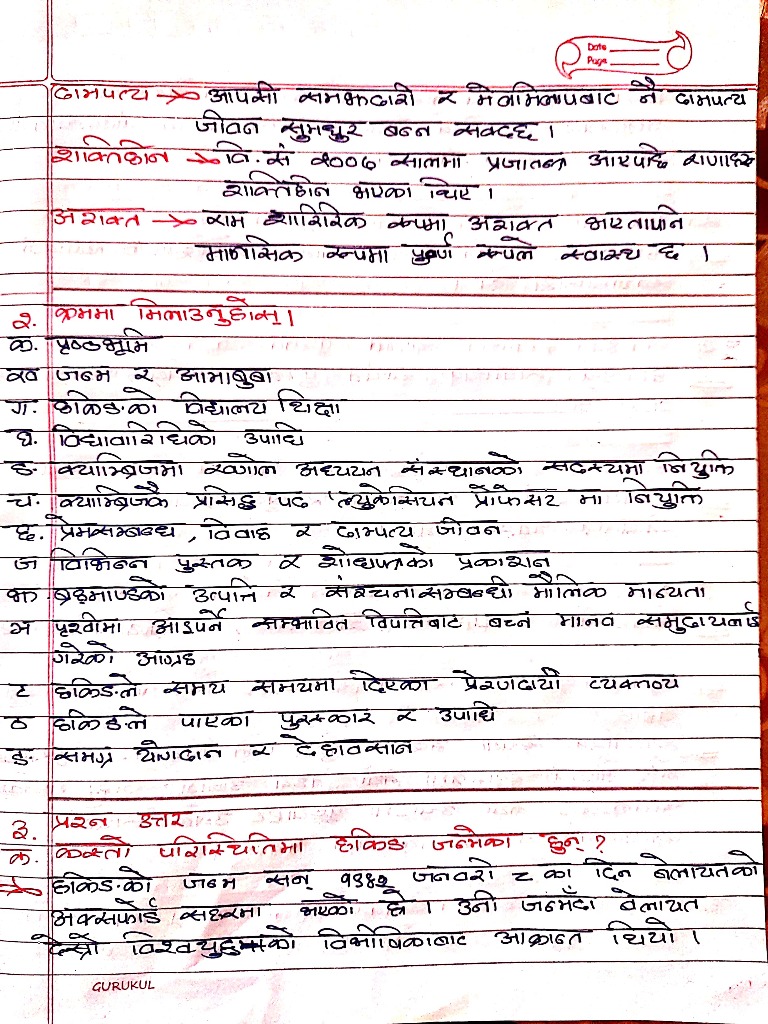 Date
Page
दाम्पत्य → आपसी समझदारी र मेलमिलापबाट नै दाम्पत्य
जीवन सुमधुर बन्न सक्दछ ।
शक्तिहीन → वि.सं २००७ सालमा प्रजातन्त्र आएपछि राणाहरू
शक्तिहीन भएका थिए ।
अशक्त → राम शारिरिक रूपमा अशक्त भएतापनि
मानसिक रूपमा पुर्ण रूपले स्वास्थ छ ।
२. क्रममा मिलाउनुहोस् ।
क. पृष्ठभूमि
ख जन्म र आमाबुबा
ग. हकिङको विद्यालय शिक्षा
घ. विद्यावारिधिको उपाधि
ङ. क्याम्ब्रिजमा खगोल अध्ययन संस्थानको सदस्यमा नियुक्ति
च. क्याम्ब्रिजकै प्रसिद्ध पद 'ल्युकेसियन प्रोफेसर' मा नियुक्ति
छ. प्रेमसम्बन्ध, विवाह र दाम्पत्य जीवन
ज विभिन्न पुस्तक र शोधपत्रको प्रकाशन
झ ब्रह्माण्डको उत्पत्ति र संरचनासम्बन्धी मौलिक मान्यता
ञ पृथ्वीमा आइपर्ने सम्भावित विपत्तिबाट बच्न मानव समुदायलाई
गरेको आग्रह
ट हकिङले समय समयमा दिएका प्रेरणदायी व्यक्तव्य
ठ हकिङले पाएका पुरस्कार र उपाधि
ड. समग्र योगदान र देहावसान
३. प्रश्न उत्तर
क. कस्तो परिस्थितिमा हकिङ जन्मेका हुन् ?
→ हकिङको जन्म सन् १९४२ जनवरी ८ का दिन बेलायतको
अक्सफोर्ड सहरमा भएको हो । उनी जन्मँदा बेलायत
दोस्रो विश्वयुद्धको विभीषिकाबाट आक्रान्त थियो ।
GURUKUL